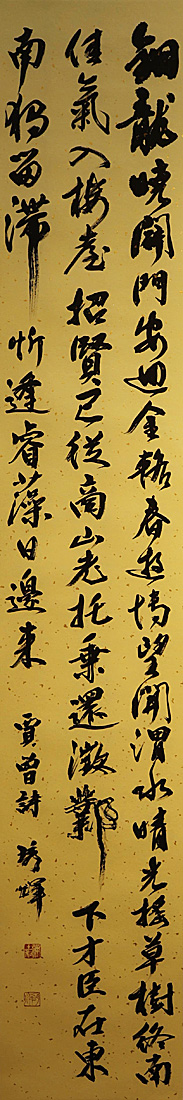 銅龍曉闢問安迴金輅春遊博望開渭水晴光搖草樹終南
佳氣入樓臺招賢已從商山老托乘還徵鄴下才臣在東
南獨留滯忻逢睿藻日邊來
賈曾詩 輝